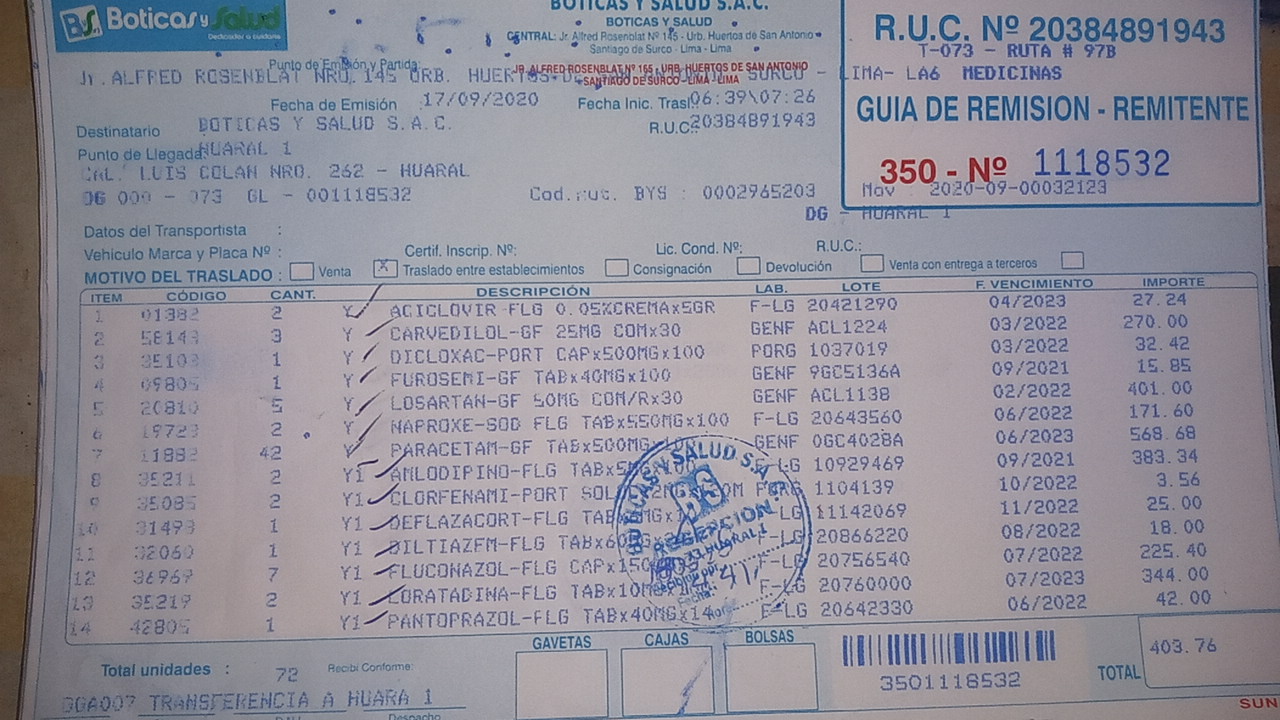 BS Boticas y Salud
Dedicados a cuidarte
BOTICAS Y SALUD S.A.C.
BOTICAS Y SALUD
CENTRAL: Jr. Alfred Rosenblat Nº 145 - Urb. Huertos de San Antonio
Santiago de Surco - Lima - Lima
R.U.C. Nº 20384891943
T-073 - RUTA # 97B
Punto de Emisión y Partida:
JR. ALFRED ROSENBLAT NRO. 145 URB. HUERTOS DE SAN ANTONIO SURCO - LIMA- LA6 MEDICINAS
JR. ALFRED ROSENBLAT Nº 165 - URB. HUERTOS DE SAN ANTONIO
SANTIAGO DE SURCO - LIMA - LIMA
GUIA DE REMISION - REMITENTE
350 - Nº 1118532
Nav 2020-09-00032123
DG - HUARAL 1
Fecha de Emisión 17/09/2020 Fecha Inic. Trasl. 06:39\07:26
Destinatario BOTICAS Y SALUD S.A.C. R.U.C. 20384891943
Punto de Llegada: HUARAL 1
CAL. LUIS COLAN NRO. 262 - HUARAL
DG 000 - 073 GL - 001118532 Cod.rut. BYS : 0002965203
Datos del Transportista :
Vehiculo Marca y Placa Nº : Certif. Inscrip. Nº: Lic. Cond. Nº: R.U.C.:
MOTIVO DEL TRASLADO : Venta X Traslado entre establecimientos Consignación Devolución Venta con entrega a terceros
ITEM CÓDIGO CANT. DESCRIPCIÓN LAB. LOTE F. VENCIMIENTO IMPORTE
1 01382 2 Y ACICLOVIR FLG 0.05%CREMAx5GR F-LG 20421290 04/2023 27.24
2 58143 3 Y CARVEDILOL-GF 25MG COMx30 GENF ACL1224 03/2022 270.00
3 1 Y DICLOXAC-PORT CAPx500MGx100 PORG 1037019 03/2022 32.42
4 09805 1 Y FUROSEMI-GF TABx40MGx100 GENF 9GC5136A 09/2021 15.85
5 20810 5 Y LOSARTAN-GF 50MG COM/Rx30 GENF ACL1138 02/2022 401.00
6 19723 2 Y NAPROXE-SOD FLG TABx550MGx100 F-LG 20643560 06/2022 171.60
7 11882 42 Y PARACETAM-GF TABx500MGx100 GENF 0GC4028A 06/2023 568.68
8 35211 2 Y1 AMLODIPINO-FLG F-LG 10929469 09/2021 383.34
9 35085 2 Y1 CLORFENAMI-PORT PORG 1104139 10/2022 3.56
10 31493 1 Y1 DEFLAZACORT-FLG F-LG 11142069 11/2022 25.00
11 32060 1 Y1 DILTIAZEM-FLG 20866220 08/2022 18.00
12 36969 7 Y1 FLUCONAZOL-FLG F-LG 20756540 07/2022 225.40
13 35219 2 Y1 LORATADINA-FLG F-LG 20760000 07/2023 344.00
14 42805 1 Y1 PANTOPRAZOL-FLG TABx40MGx14 F-LG 20642330 06/2022 42.00
BOTICAS Y SALUD S.A.C.
RECEPCION
HUARAL 1
Total unidades : 72 Recibí Conforme: GAVETAS CAJAS BOLSAS 3501118532 TOTAL 403.76
DGA007 TRANSFERENCIA A HUARA 1
Despacho
SUN